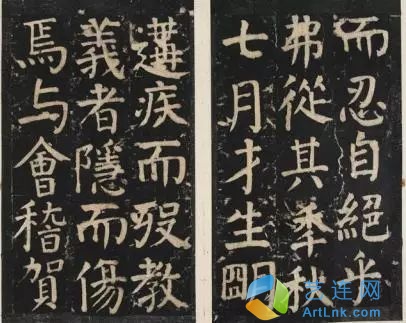 而忍自絕乎
弗從其秊秋
七月才生朙
遘疾而歿教
義者隱而傷
焉与會稽賀
艺连网
ArtLnk.com